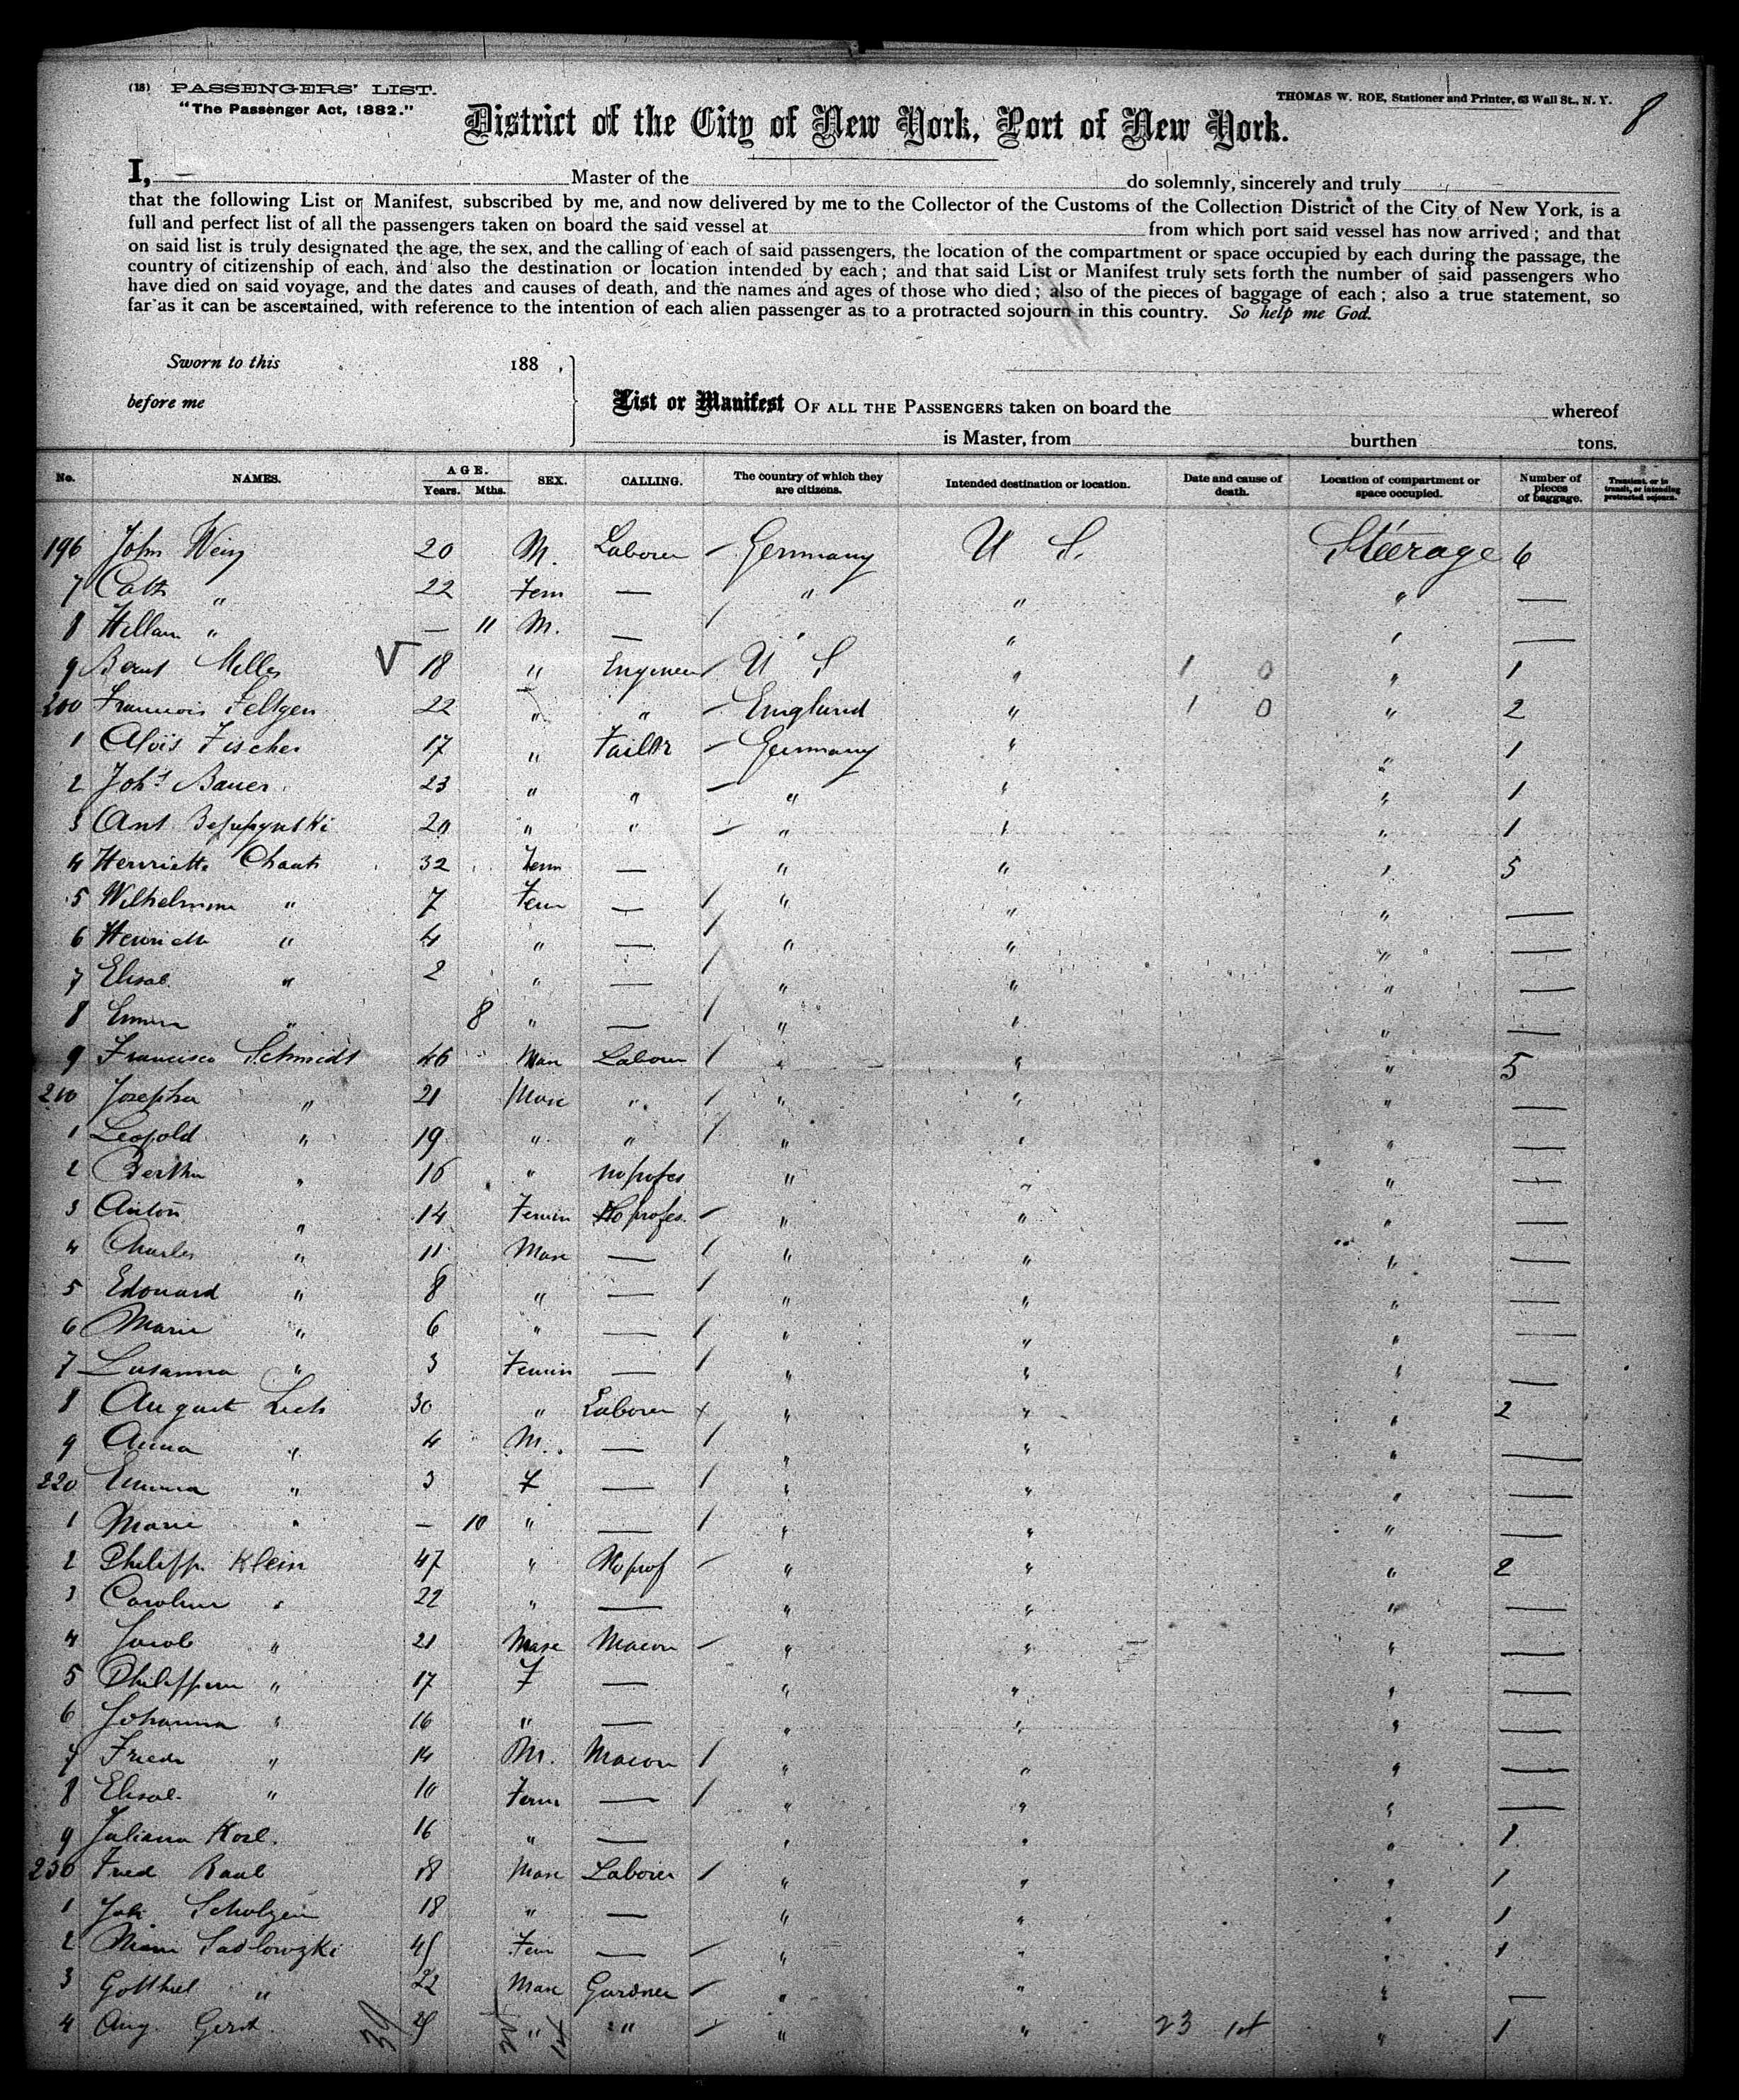 (18) PASSENGERS' LIST.
"The Passenger Act, 1882."
THOMAS W. ROE, Stationer and Printer, 63 Wall St., N. Y.
8
District of the City of New York, Port of New York.
I, Master of the do solemnly, sincerely and truly
that the following List or Manifest, subscribed by me, and now delivered by me to the Collector of the Customs of the Collection District of the City of New York, is a
full and perfect list of all the passengers taken on board the said vessel at from which port said vessel has now arrived; and that
on said list is truly designated the age, the sex, and the calling of each of said passengers, the location of the compartment or space occupied by each during the passage, the
country of citizenship of each, and also the destination or location intended by each; and that said List or Manifest truly sets forth the number of said passengers who
have died on said voyage, and the dates and causes of death, and the names and ages of those who died; also of the pieces of baggage of each; also a true statement, so
far as it can be ascertained, with reference to the intention of each alien passenger as to a protracted sojourn in this country. So help me God.
Sworn to this 188 ,
before me
List or Manifest OF ALL THE PASSENGERS taken on board the whereof
is Master, from burthen tons.
No. NAMES. AGE. Years. Mths. SEX. CALLING. The country of which they are citizens. Intended destination or location. Date and cause of death. Location of compartment or space occupied. Number of pieces of baggage. Transient, or in transit, or intending protracted sojourn.
196 John 20 M. Laborer - Germany U S. Steerage 6
7 Cath " 22 Fem — " " " —
8 " — 11 M. — / " " " —
9 √ 18 " Engineer / U S " 1 0 " 1
200 Francois Feltgen 22 " " - England " 1 0 " 2
1 Alois Fischer 17 " Tailor - Germany " " 1
2 Joh's Bauer 23 " " - " " " 1
3 Ant 20 " " - " " " 1
4 Henriette 32 Fem — " " " 5
5 Wilhelmine " 7 Fem — / " " " —
6 Henriette " 4 " — / " " " —
7 Elisab. " 2 " — / " " " —
8 Emma " 8 " — / " " " —
9 Francisca Schmidt 46 Mas Labour / " " " 5
210 Josepha " 21 Masc " / " " " —
1 Leopold " 19 " " / " " " —
2 Bertha " 16 " no profes " " " —
3 Anton " 14 Femin No profes. - " " " —
4 Charles " 11 Masc — / " " " —
5 Edouard " 8 " — / " " " —
6 Marie " 6 " — / " " " —
7 Susanna " 3 Femin — / " " " —
8 August 30 " Laborer x " " " 2
9 Anna " 4 M. — / " " " —
220 Emma " 3 F — / " " " —
1 Marie " — 10 " — / " " " —
2 Philipp. Klein 47 " No prof - " " " 2
3 Caroline " 22 " — " " " —
4 Jacob " 21 Masc Macon - " " " —
5 " 17 F — " " " —
6 Johanna " 16 " — " " " —
7 Friedr " 14 M. Macon / " " " —
8 Elisab. " 10 Fem — / " " " —
9 Juliana 16 " — " " " 1
230 Fred 18 Masc Laborer / " " " 1
1 Joh. Scholzen 18 " — " " " 1
2 Sadlowzki Fem — - " " " 1
3 " 22 Masc Gardner - " " " —
4 Aug. " " - " " 23 " 1